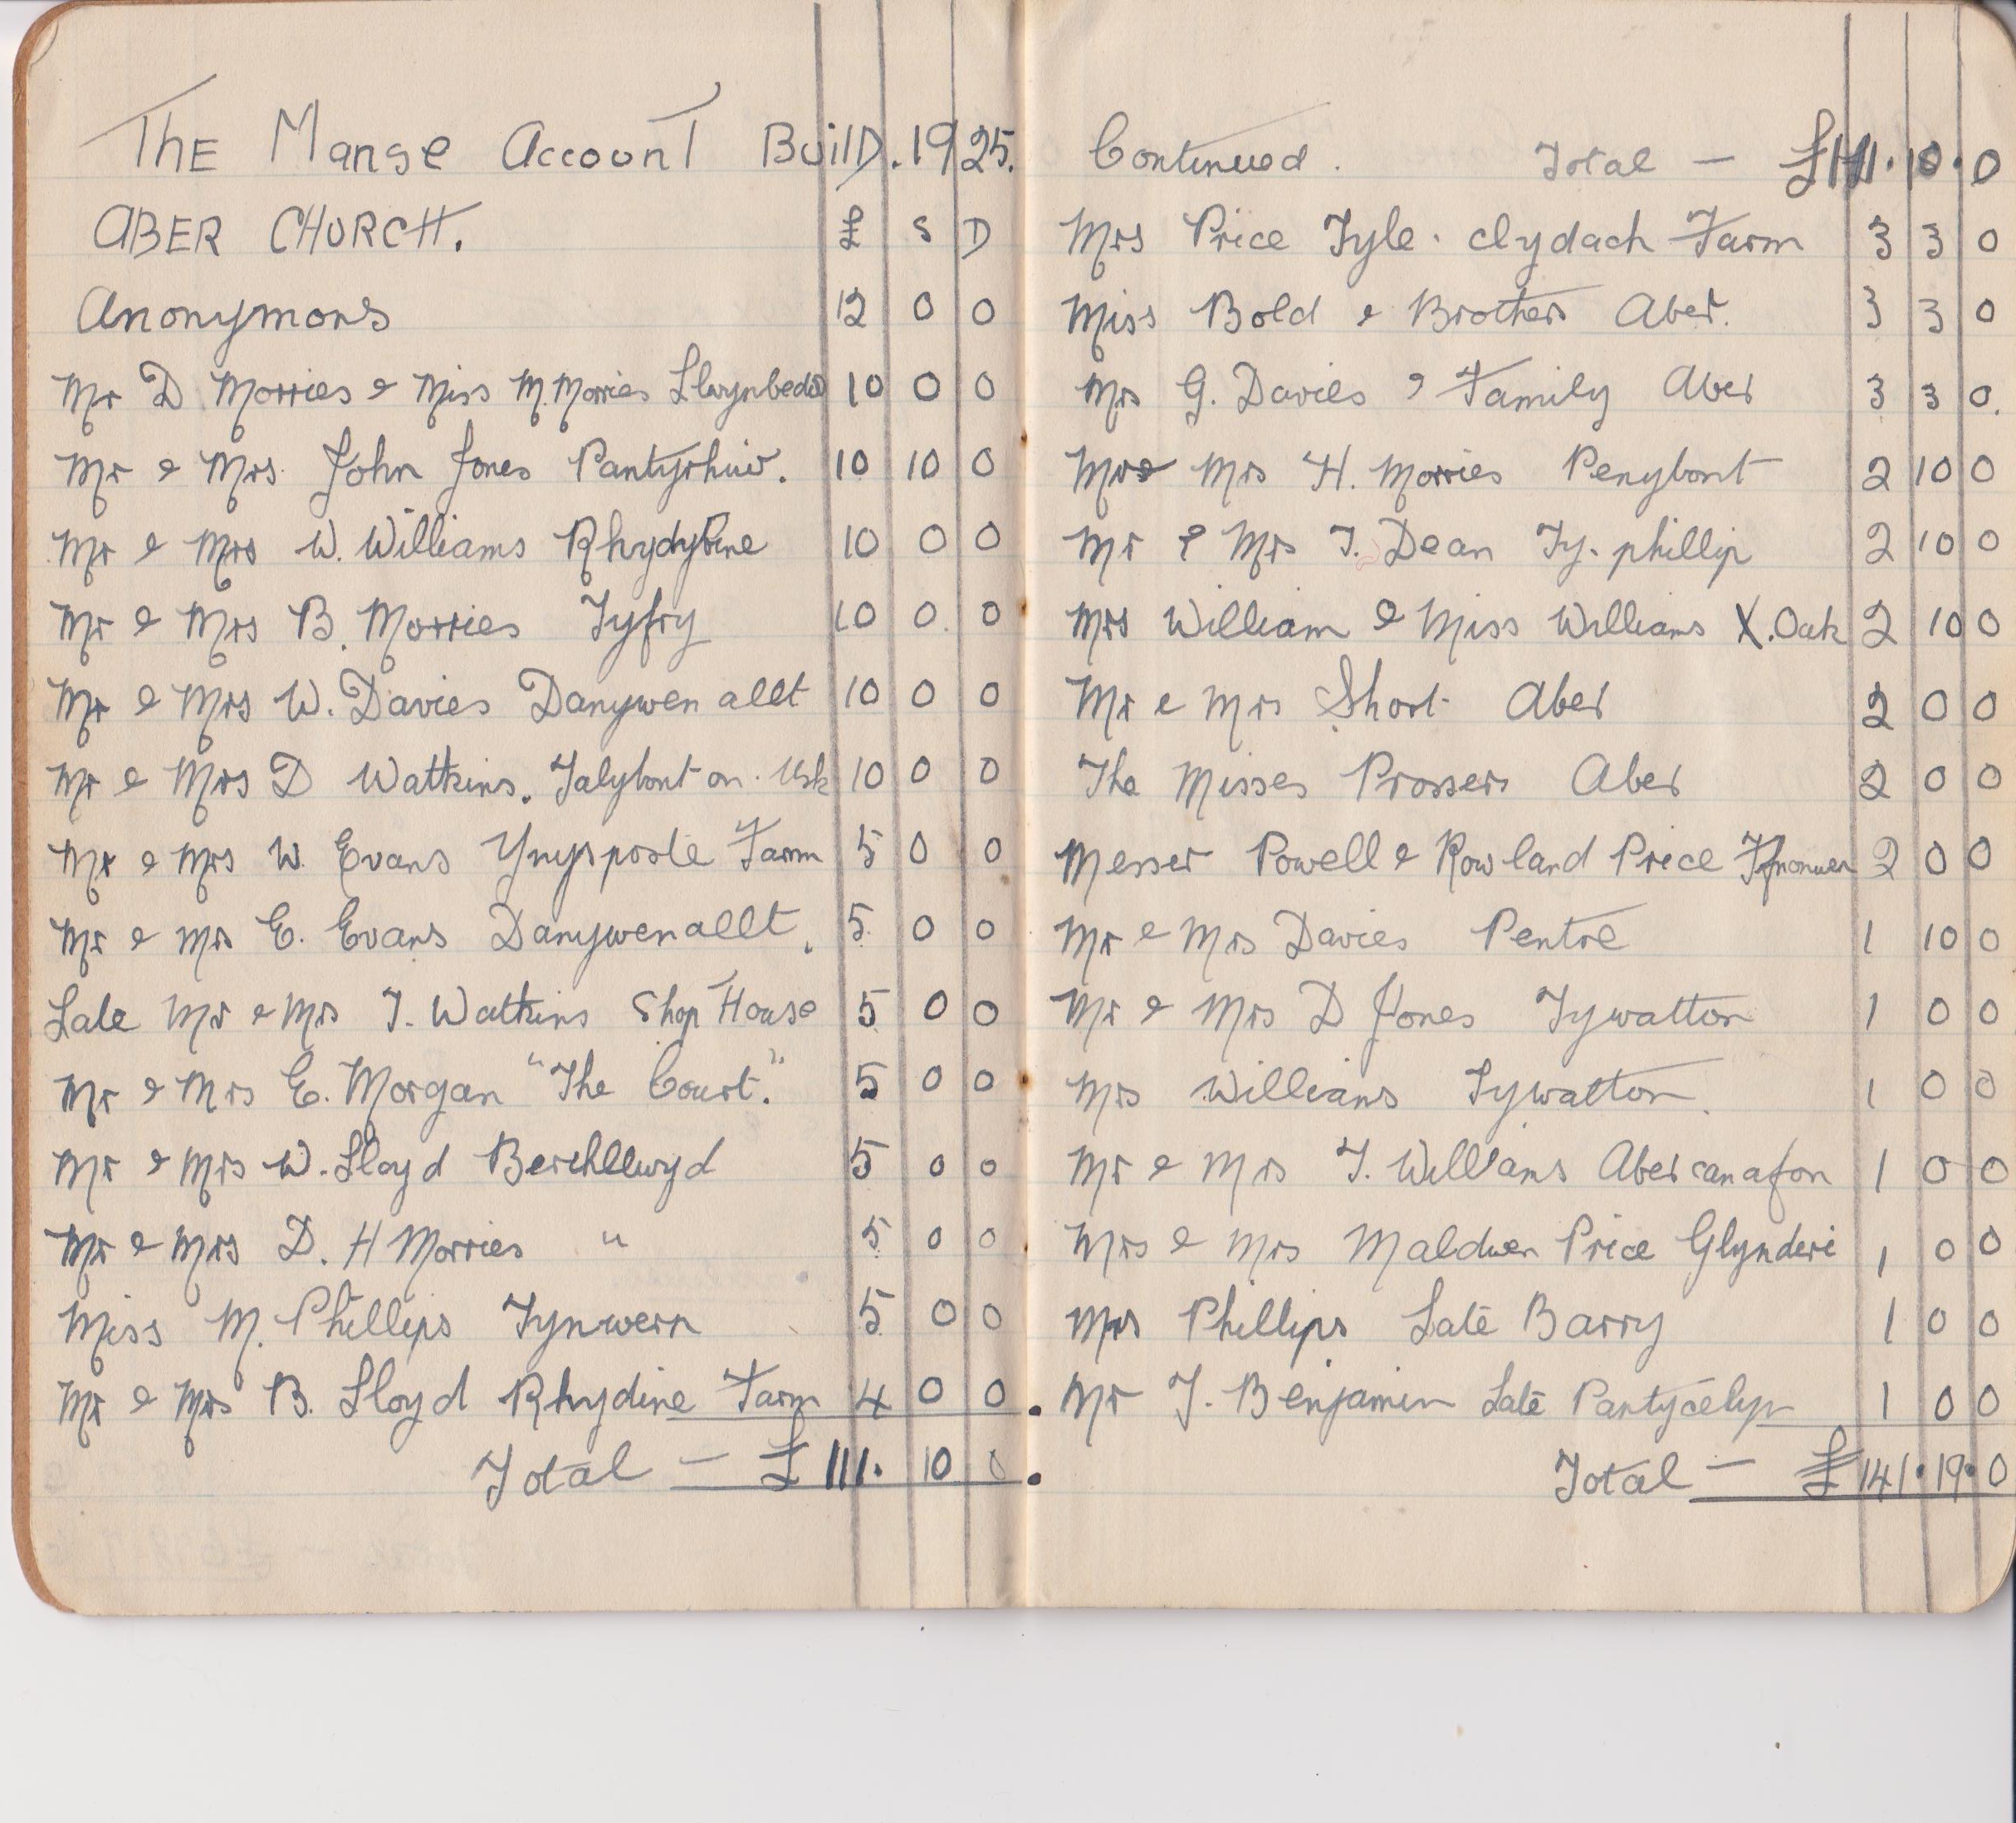 The Manse Account Build. 1925.
ABER CHURCH. £ S D
Anonymons 12 0 0
Mr D Morries & Miss M. Morries Llwynbedw 10 0 0
Mr & Mrs. John Jones Pantyrhiw. 10 10 0
Mr & Mrs W. Williams 10 0 0
Mr & Mrs B. Morries Tyfry 10 0 0
Mr & Mrs W. Davies Danywenallt 10 0 0
Mr & Mrs D Watkins. Talybont on. Usk 10 0 0
Mr & Mrs W. Evans Ynysposte Farm 5 0 0
Mr & Mrs E. Evans Danywenallt. 5 0 0
Late Mr & Mrs T. Watkins Shop House 5 0 0
Mr & Mrs E. Morgan "The Court." 5 0 0
Mr & Mrs W. Lloyd Berthllwyd 5 0 0
Mr & Mrs D. H Morries " 5 0 0
Miss M. Phillips Tynwern 5 0 0
Mr & Mrs B. Lloyd Rhydine Farm 4 0 0
Total — £111. 10 0
Continued. Total — £111.10.0
Mrs Price Tyle. clydach Farm 3 3 0
Miss Bold & Brothers Aber. 3 3 0
Mrs G. Davies & Family Aber 3 3 0.
Mr & Mrs H. Morries Penybont 2 10 0
Mr & Mrs T. Dean Ty. phillip 2 10 0
Mrs William & Miss Williams X. Oak 2 10 0
Mr & Mrs Short Aber 2 0 0
The Misses Prossers Aber 2 0 0
Messer Powell & Rowland Price 2 0 0
Mr & Mrs Davies Pentre 1 10 0
Mr & Mrs D Jones Tywatton 1 0 0
Mrs Williams Tywatton. 1 0 0
Mr & Mrs T. Williams Abercanafon 1 0 0
Mrs & Mrs Maldwen Price Glynderi 1 0 0
Mrs Phillips Late Barry 1 0 0
Mr T. Benjamin Late Pantycelyn 1 0 0
Total — £141.19.0